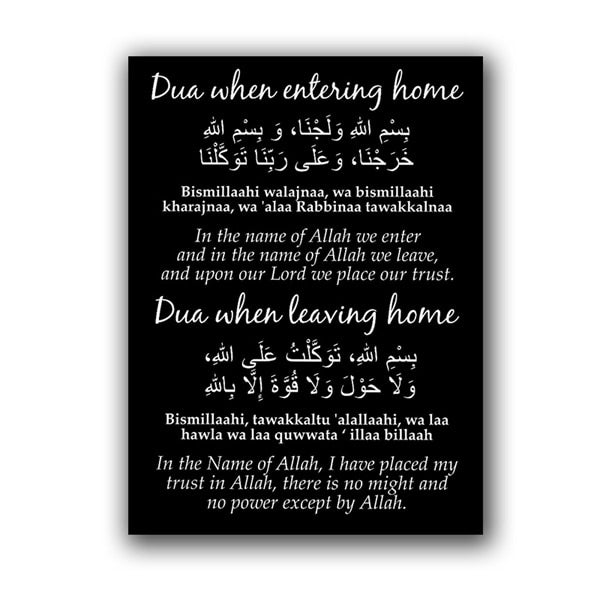 Dua when entering home
بِسْمِ اللهِ وَلَجْنَا، وَ بِسْمِ اللهِ
خَرَجْنَا، وَعَلَى رَبِّنَا تَوَكَّلْنَا
Bismillaahi walajnaa, wa bismillaahi
kharajnaa, wa 'alaa Rabbinaa tawakkalnaa
In the name of Allah we enter
and in the name of Allah we leave,
and upon our Lord we place our trust.
Dua when leaving home
بِسْمِ اللهِ، تَوَكَّلْتُ عَلَى اللهِ،
وَلَا حَوْلَ وَلَا قُوَّةَ إِلَّا بِاللهِ
Bismillaahi, tawakkaltu 'alallaahi, wa laa
hawla wa laa quwwata ‘ illaa billaah
In the Name of Allah, I have placed my
trust in Allah, there is no might and
no power except by Allah.